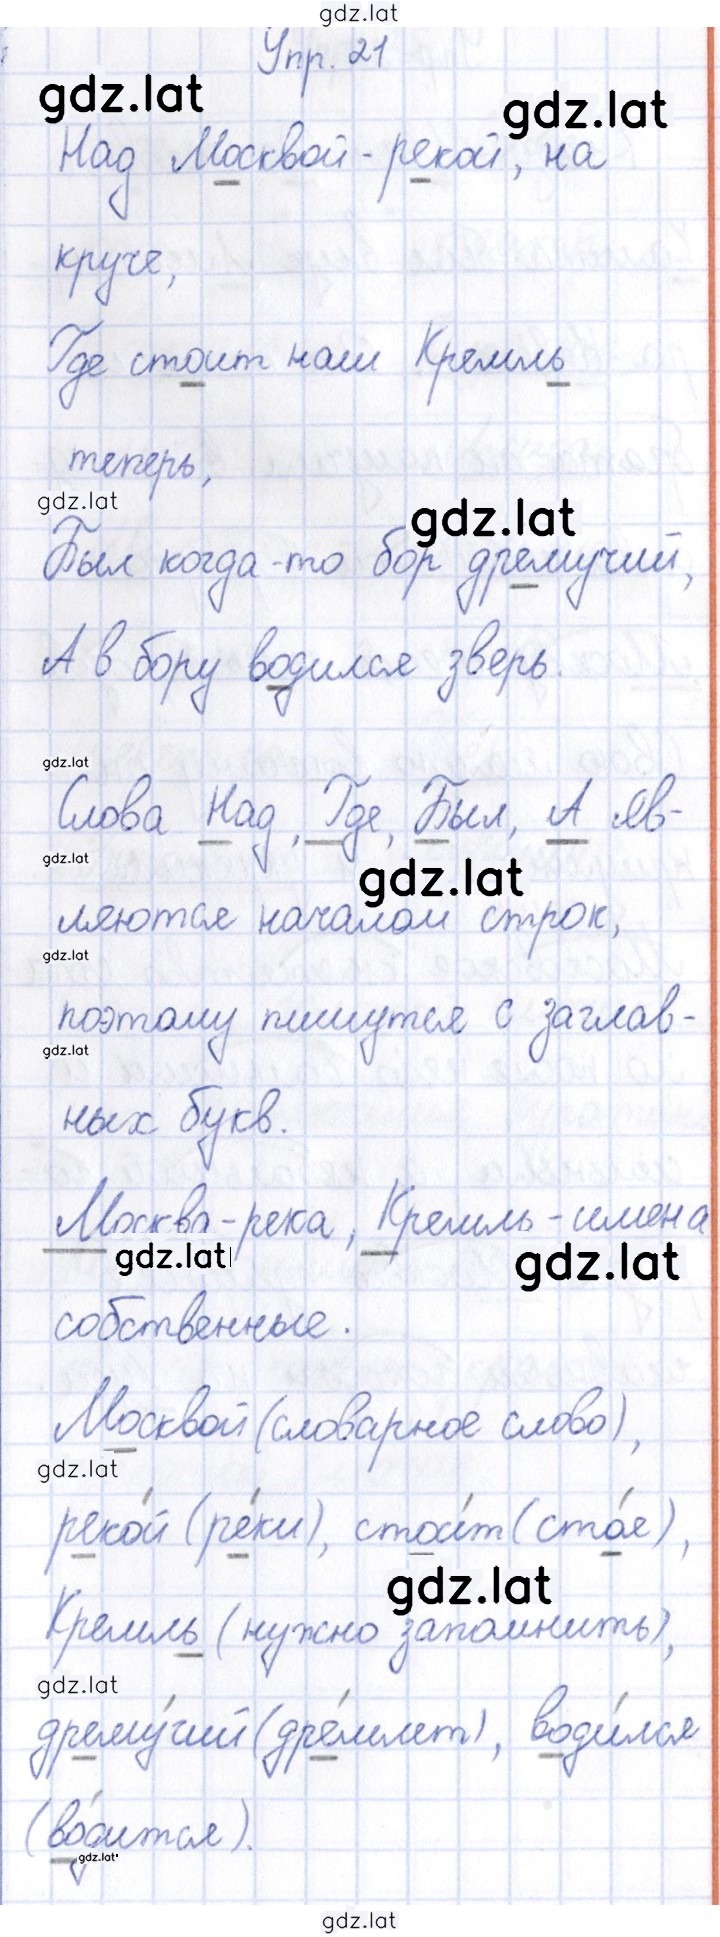 gdz.lat
Упр. 21
gdz.lat
gdz.lat
Над Москвой-рекой, на
круче,
Где стоит наш Кремль
теперь,
gdz.lat
gdz.lat
Был когда-то бор дремучий,
А в бору водился зверь.
gdz.lat
Слова Над, Где, Был, А яв-
gdz.lat
gdz.lat
ляются началом строк,
gdz.lat
поэтому пишутся с заглав-
gdz.lat
ных букв.
Москва-река, Кремль - имена
gdz.lat
gdz.lat
собственные.
Москвой (словарное слово),
gdz.lat
реко́й (ре́ки), стои́т (сто́я),
gdz.lat
Кремль (нужно запомнить),
gdz.lat
дрему́чий (дре́млет), води́лся
(во́дится).
gdz.lat
gdz.lat